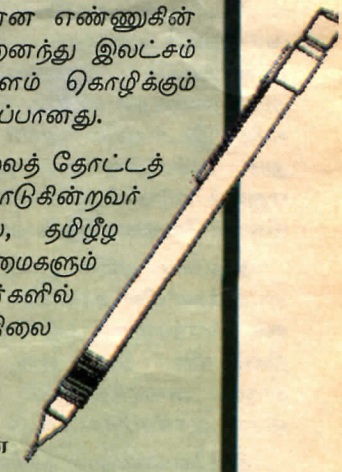 ான எண்ணுகின்
றைந்து இலட்சம்
ளம் கொழிக்கும்
ப்பானது.
லைத் தோட்டத்
ாடுகின்றவர்
தமிழீழ
மைகளும்
ர்களில்
ிலை
ன